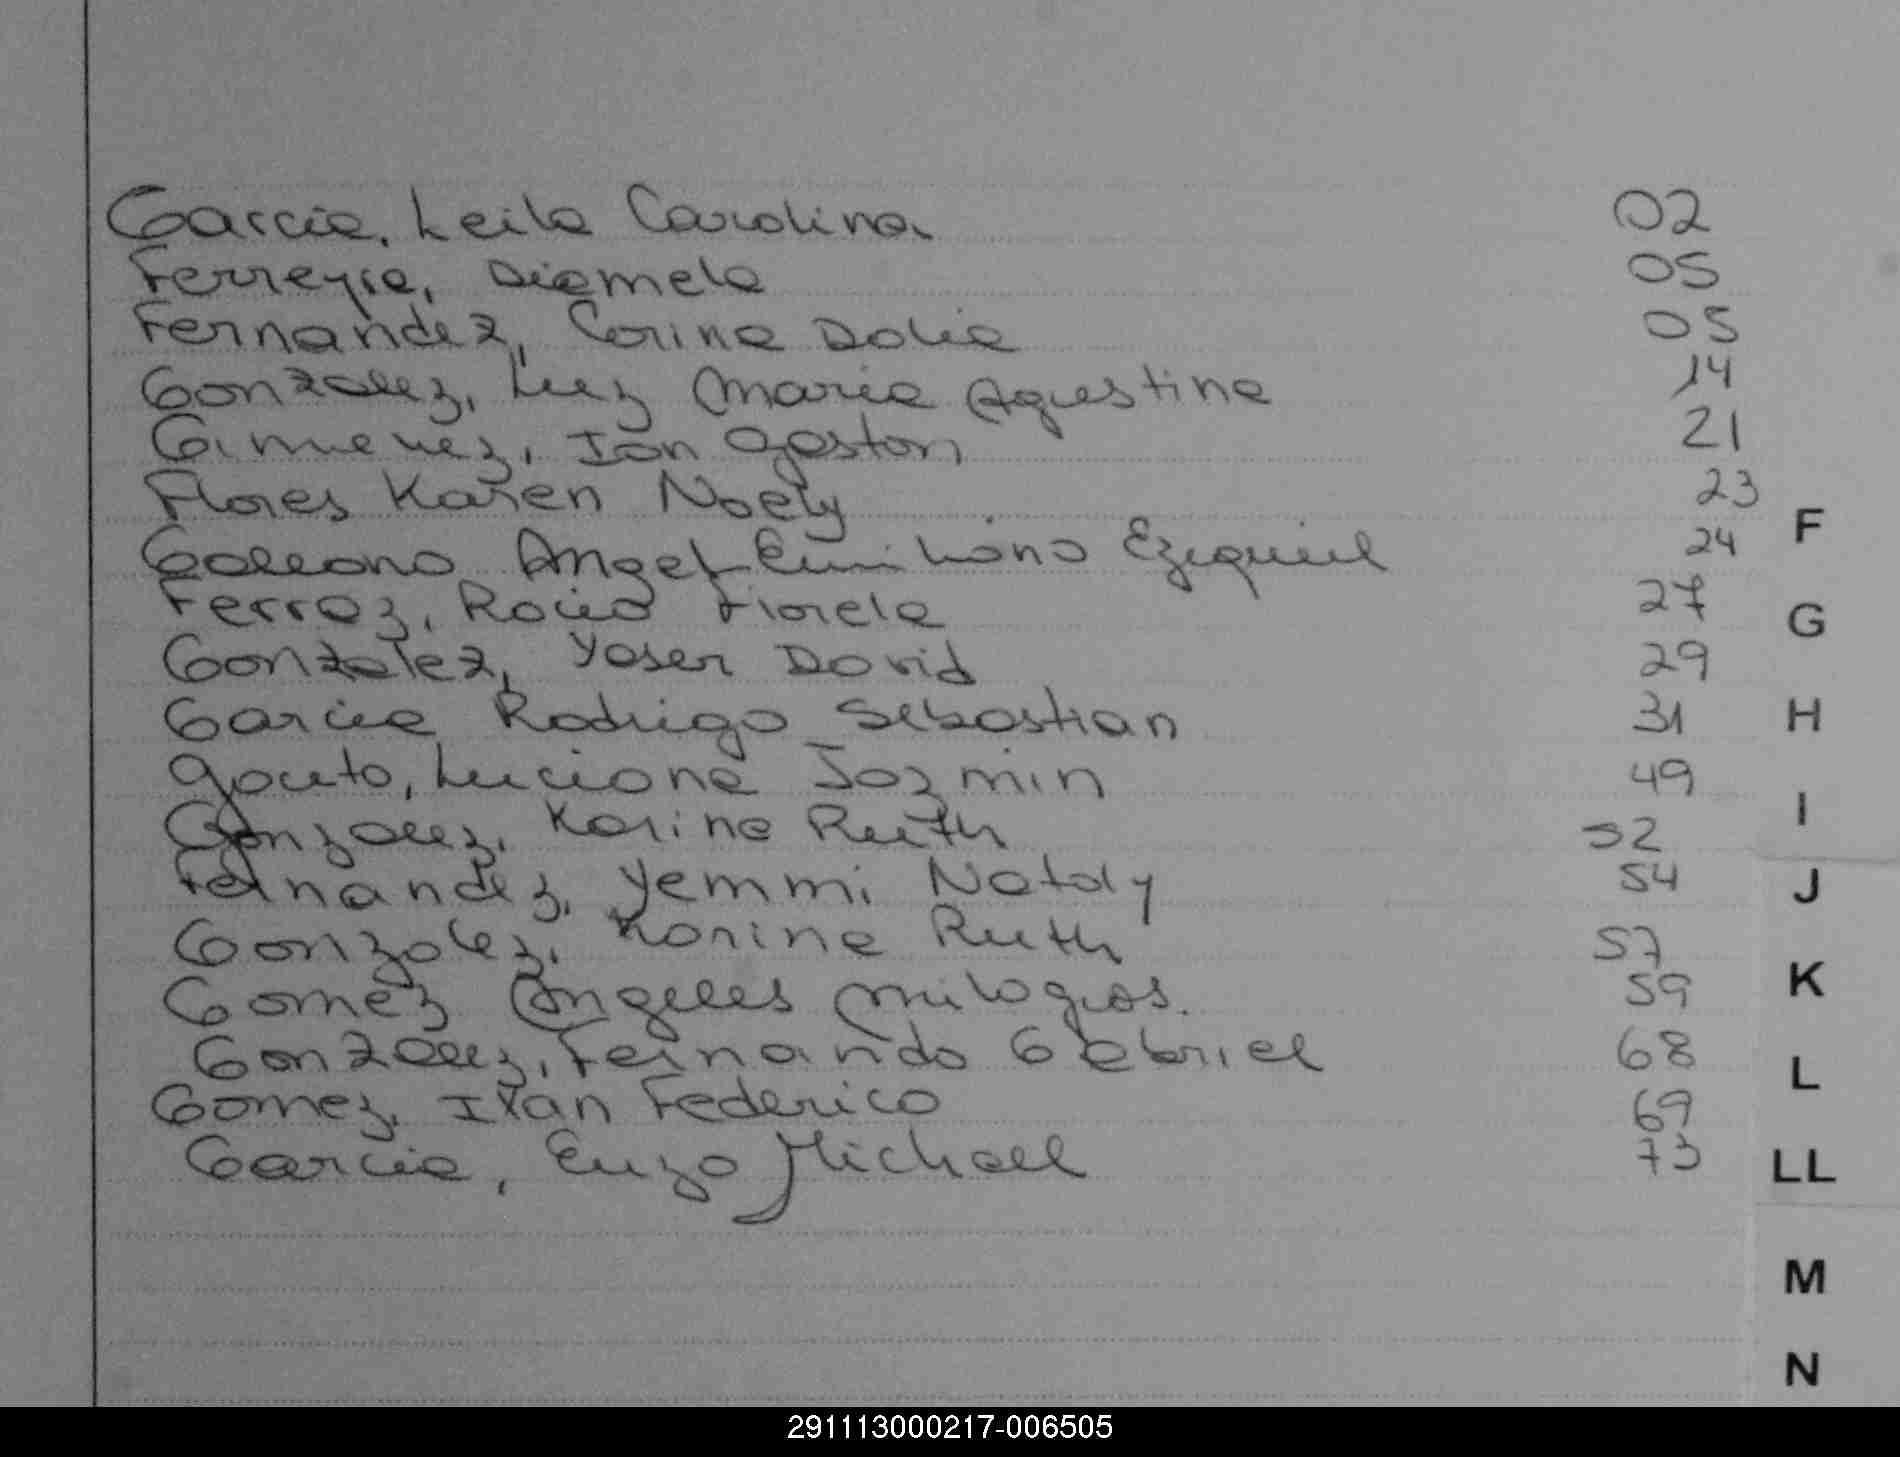 Garcia, Leila Carolina 02
Ferreyra, Diamela 05
Fernandez, Corina Dalia 05
Gonzalez, Luz Maria Agustina 14
Gimenez, Ian Gaston 21
Flores Karen Noely 23
Galeano Angel Emiliano Ezequiel 24
Ferraz, Rocio Fiorela 27
Gonzalez, Yaser David 29
Garcia Rodrigo Sebastian 31
Gauto, Luciana Jazmin 49
Gonzalez, Karina Ruth 52
Fernandez, Yemmi Nataly 54
Gonzalez, Karina Ruth 57
Gomez Angeles Milagros. 59
Gonzalez, Fernando Gabriel 68
Gomez, Ivan Federico 69
Garcia, Enzo Michael 73
F
G
H
I
J
K
L
LL
M
N
291113000217-006505